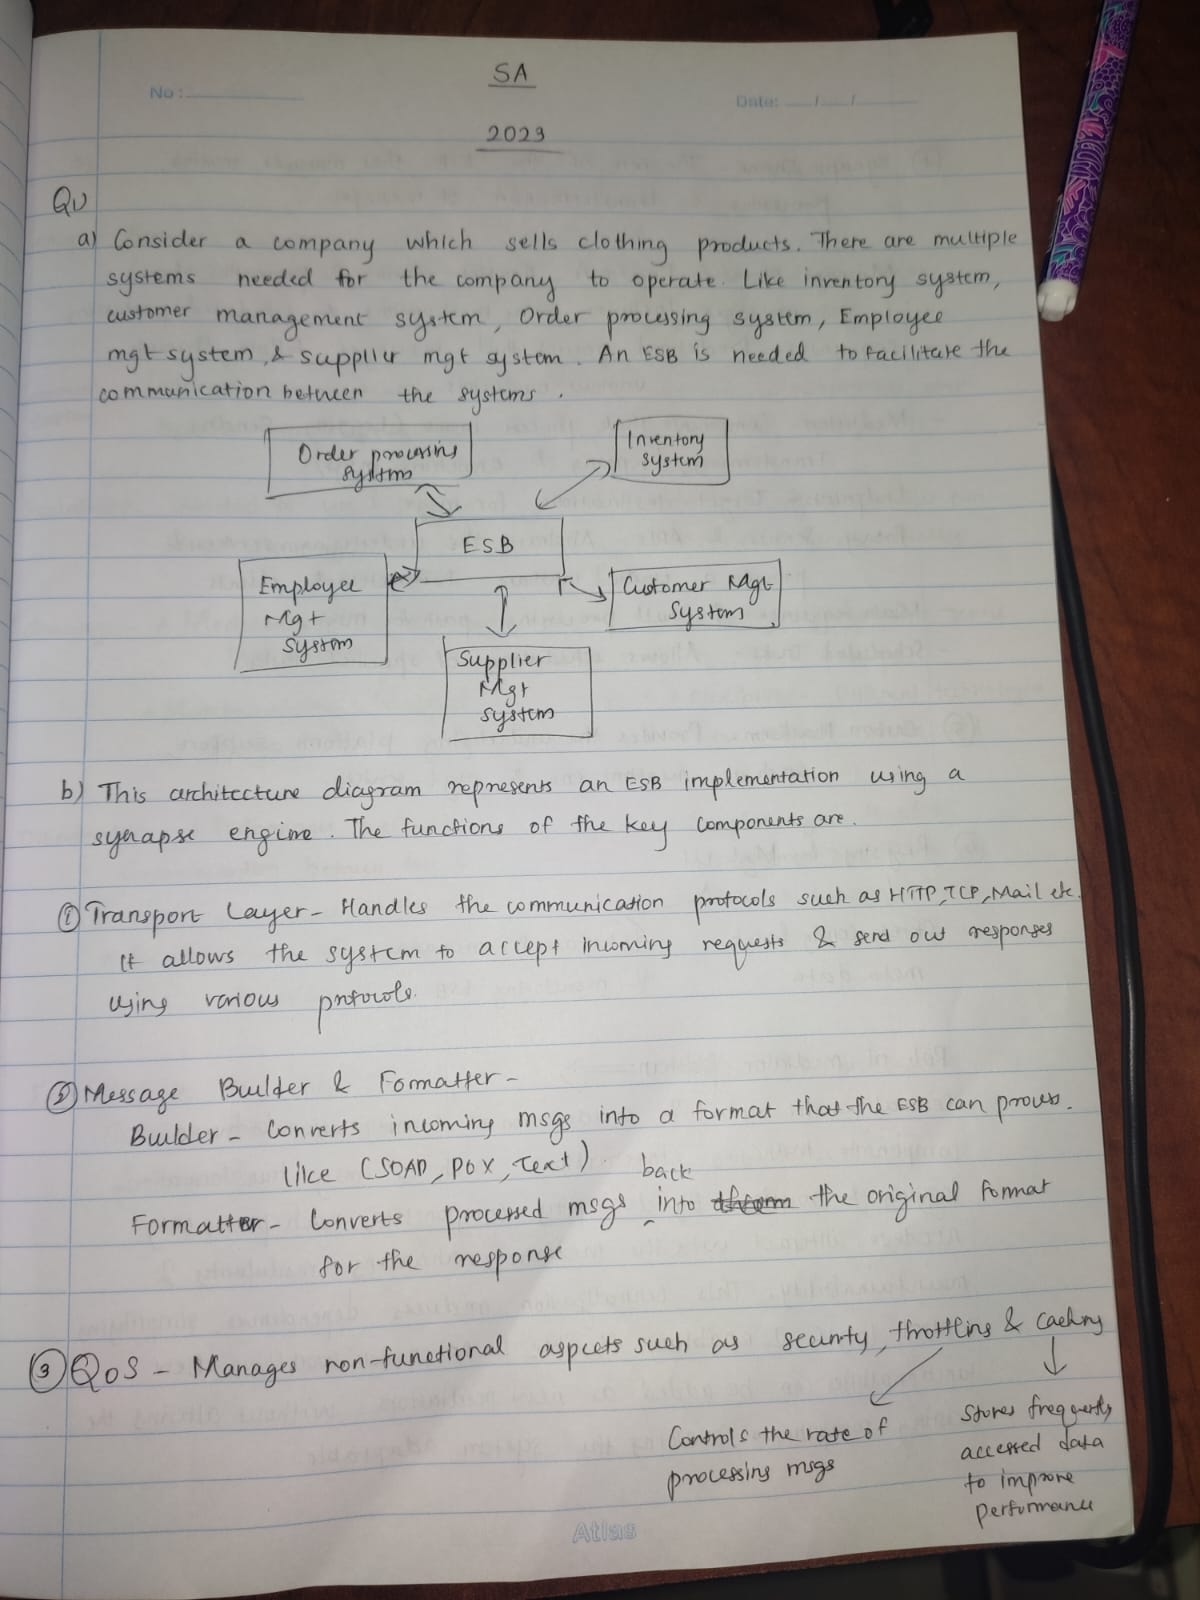 SA
No:
Date: / /
2023
Q1)
a) Consider a company which sells clothing products. There are multiple
systems needed for the company to operate. Like inventory system,
customer management system, Order processing system, Employee
mgt system, & supplier mgt system. An ESB is needed to facilitate the
communication between the systems.
Order processing
systems
Inventory
system
ESB
Employee
Mgt
system
Customer Mgt
System
Supplier
Mgt
system
b) This architecture diagram represents an ESB implementation using a
synapse engine. The functions of the key components are.
① Transport Layer - Handles the communication protocols such as HTTP, TCP, Mail etc.
It allows the system to accept incoming requests & send out responses
using various protocols.
② Message Builder & Formatter -
Builder - Converts incoming msgs into a format that the ESB can process.
like (SOAP, POX, Text).
Formatter - Converts processed msgs back into the original format
for the response
③ QoS - Manages non-functional aspects such as security, throttling & caching
Controls the rate of
processing msgs
Stores frequently
accessed data
to improve
performance
Atlas